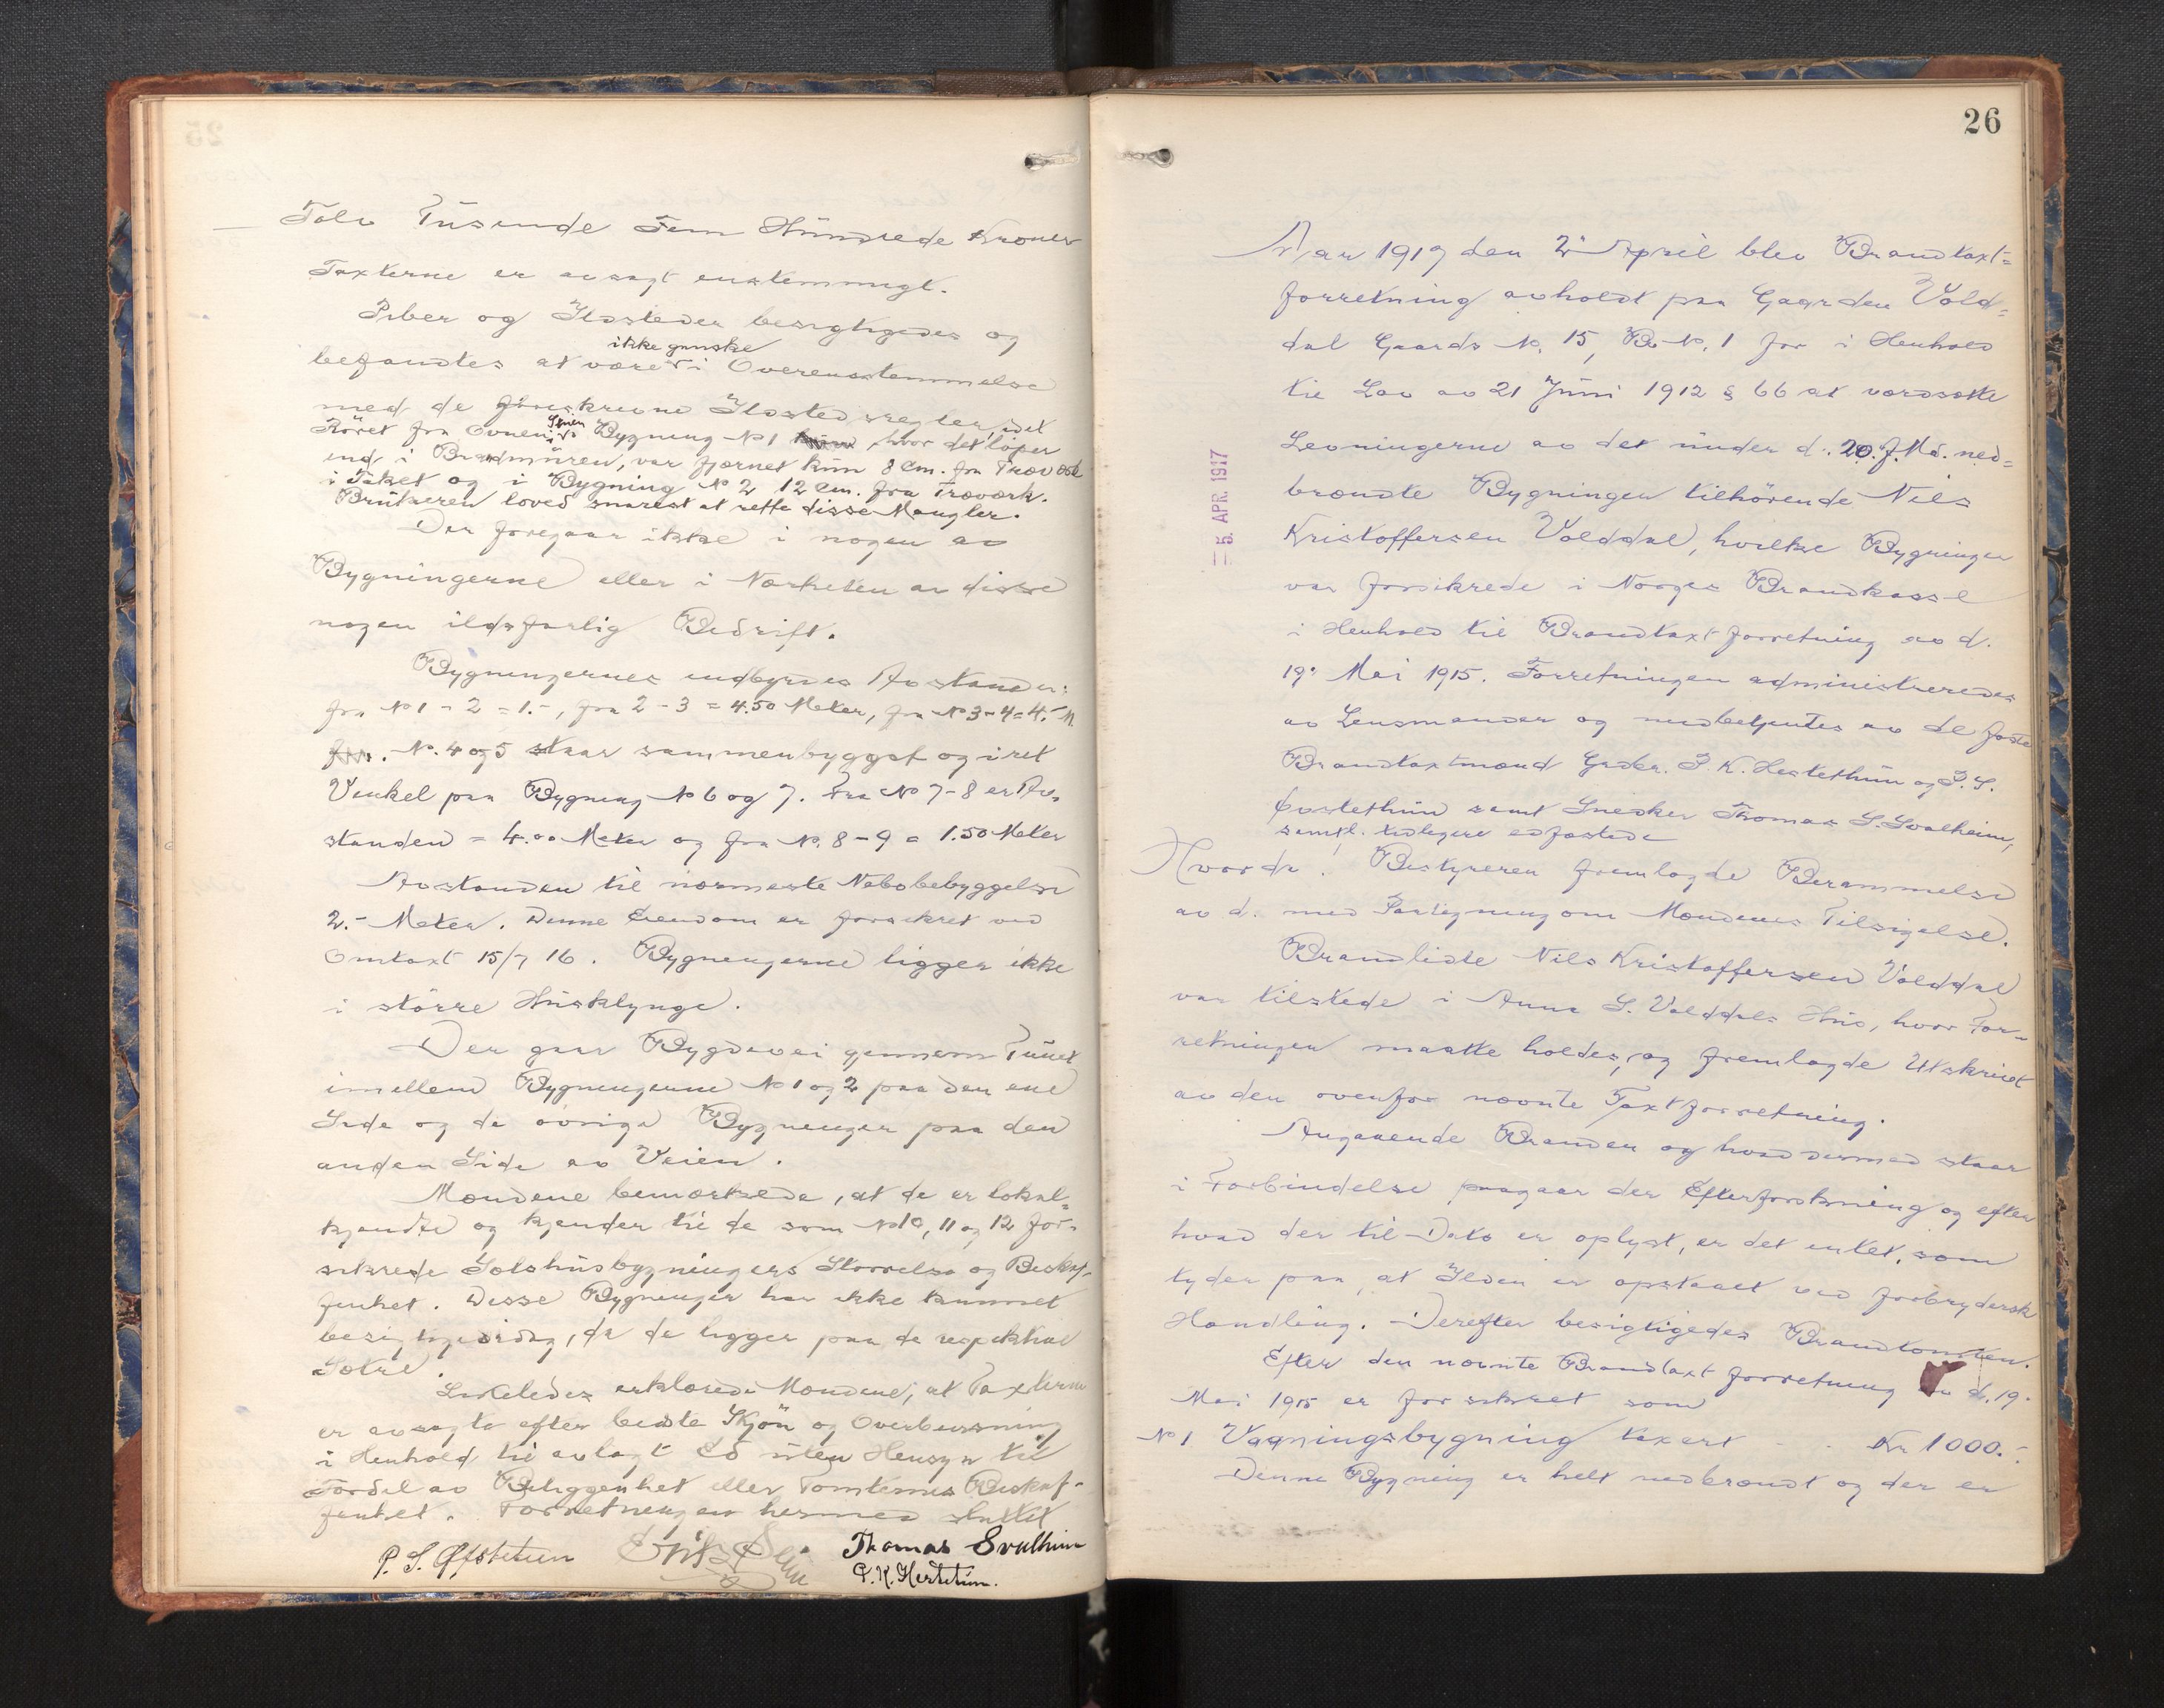 Tolv Tusende Fem Hundrede Kroner
Taxterne er avsagt enstemmigt.
Piber og Ildsteder besigtigedes og
ikke ganske
befandtes at være i Overensstemmelse
med de foreskrevne Ildstedsregler, idet
Röret fra Ovnen i Stuen Bygning No 1, hvor det löper
ind i Brandmüren, var fjernet kun 8 cm. fra Træværk
i Taket og i Bygning No 2 12 cm. fra Træværk.
Brükeren loved snarest at rette disse Mangler.
Der foregaar ikke i nogen av
Bygningerne eller i Nærheten av disse
nogen ildsfarlig Bedrift.
Bygningernes indbyrdes Avstander:
fra No 1 - 2 = 1.-, fra 2 - 3 = 4.50 Meter, fra No 3 - 4 = 4.- M
No. 4 og 5 staar sammenbygget og i ret
Vinkel paa Bygning No 6 og 7. Fra No 7 - 8 er Av-
standen = 4.00 Meter og fra No. 8 - 9 = 1.50 Meter
Avstanden til nærmeste Nabobebyggelse
2.- Meter. Denne Eiendom er forsikret ved
Omtaxt 15/7 16. Bygningerne ligger ikke
i större Hüsklynge.
Der gaar Bygdevei gjennem Tünet
imellem Bygningerne No 1 og 2 paa den ene
Side og de övrige Bygninger paa den
anden Side av Veien.
Mændene bemærkede, at de er lokal-
kjendte og kjender til de som No 10, 11 og 12 for-
sikrede Selshüsbygningers Størrelse og Beskaf-
fenhet. Disse Bygninger har ikke kunnet
besigtiges idag, da de ligger paa de respektive
Sætre.
Likeledes erklærede Mændene, at Taxterne
er avsagte efter bedste Skjön og Overbevisning
i Henhold til avlagt Ed uten Hensyn til
Fordel av Beliggenhet eller Tomternes Beskaf-
fenhet. Forretningen hermed sluttet
P. S. Øfstetun Thomas Svalheim
P. K. Hestetun.
26
Aar 1917 den 2. April blev Brandtaxt-
forretning avholdt paa Gaarden Vold-
dal Gaards No. 15, B. No. 1 for i Henhold
til Lov av 21 Juni 1912 § 66 at værdsætte
Levningerne av det ünder d. 20. f. Md. ned-
brændte Bygninger tilhörende Nils
Kristoffersen Volddal, hvilke Bygninger
var forsikrede i Norges Brandkasse
i Henhold til Brandtaxtforretning av d.
19. Mai 1915. Forretningen administreredes
av Lensmanden og medbetjentes av de faste
Brandtaxtmænd Grdbr. P. K. Hestethün og P. S.
Öfstethün samt Snedker Thomas S. Svalheim,
samtl. tidligere edfæstede
Hvorda! Bestyreren fremlagde Berammelse
av d. med Paategning om Mændenes Tilsigelse.
Brandlidte Nils Kristoffersen Volddal
var tilstede i Anna S. Volddals Hüs, hvor For-
retningen maatte holdes, og fremlagde Utskrivt
av den ovenfor nævnte Taxtforretning.
Angaaende Branden og hvad dermed staar
i Forbindelse paagaar der Efterforskning og efter
hvad der til Dato er oplyst, er det intet, som
tyder paa, at Ilden er opstaaet ved forbrydersk
Handling. Derefter besigtigedes Brandtomten.
Efter den nævnte Brandtaxtforretning av d. 19.
Mai 1915 er forsikret som
No 1 Vaaningsbygning taxert - - Kr 1000.-
Denne Bygning er helt nedbrændt og der er
- 5. APR. 1917